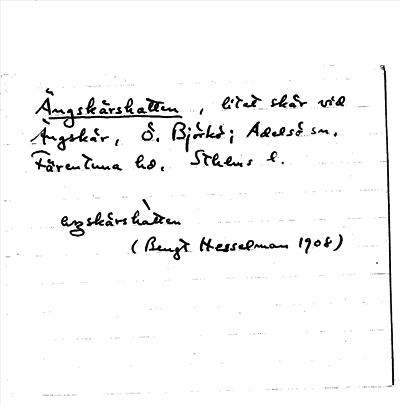 Ängskärshatten, litet skär vid
Ängskär, Ö. Björkö; Adelsö sn.
Färentuna hd. Sthlms l.
ängskärshàtten
(Bengt Hesselman 1908)